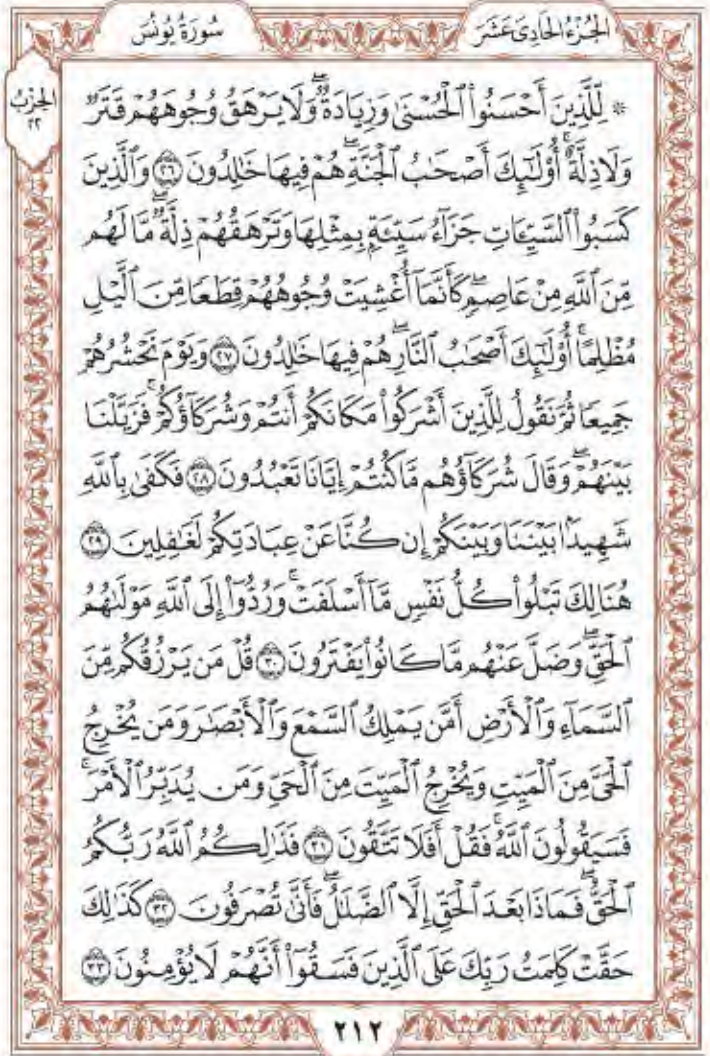 الجُزْءُ الحَادِىَ عَشَرَ
سُورَةُ يُونُسَ
الحِزْبُ
٢٢
۞ لِّلَّذِينَ أَحْسَنُوا۟ ٱلْحُسْنَىٰ وَزِيَادَةٌۖ وَلَا يَرْهَقُ وُجُوهَهُمْ قَتَرٌ
وَلَا ذِلَّةٌۚ أُو۟لَٰٓئِكَ أَصْحَٰبُ ٱلْجَنَّةِۖ هُمْ فِيهَا خَٰلِدُونَ ٢٦ وَٱلَّذِينَ
كَسَبُوا۟ ٱلسَّيِّـَٔاتِ جَزَآءُ سَيِّئَةٍۭ بِمِثْلِهَا وَتَرْهَقُهُمْ ذِلَّةٌۖ مَّا لَهُم
مِّنَ ٱللَّهِ مِنْ عَاصِمٍۖ كَأَنَّمَآ أُغْشِيَتْ وُجُوهُهُمْ قِطَعًا مِّنَ ٱلَّيْلِ
مُظْلِمًاۚ أُو۟لَٰٓئِكَ أَصْحَٰبُ ٱلنَّارِۖ هُمْ فِيهَا خَٰلِدُونَ ٢٧ وَيَوْمَ نَحْشُرُهُمْ
جَمِيعًا ثُمَّ نَقُولُ لِلَّذِينَ أَشْرَكُوا۟ مَكَانَكُمْ أَنتُمْ وَشُرَكَآؤُكُمْۚ فَزَيَّلْنَا
بَيْنَهُمْۖ وَقَالَ شُرَكَآؤُهُم مَّا كُنتُمْ إِيَّانَا تَعْبُدُونَ ٢٨ فَكَفَىٰ بِٱللَّهِ
شَهِيدًۢا بَيْنَنَا وَبَيْنَكُمْ إِن كُنَّا عَنْ عِبَادَتِكُمْ لَغَٰفِلِينَ ٢٩
هُنَالِكَ تَبْلُوا۟ كُلُّ نَفْسٍ مَّآ أَسْلَفَتْۚ وَرُدُّوٓا۟ إِلَى ٱللَّهِ مَوْلَىٰهُمُ
ٱلْحَقِّۖ وَضَلَّ عَنْهُم مَّا كَانُوا۟ يَفْتَرُونَ ٣٠ قُلْ مَن يَرْزُقُكُم مِّنَ
ٱلسَّمَآءِ وَٱلْأَرْضِ أَمَّن يَمْلِكُ ٱلسَّمْعَ وَٱلْأَبْصَٰرَ وَمَن يُخْرِجُ
ٱلْحَىَّ مِنَ ٱلْمَيِّتِ وَيُخْرِجُ ٱلْمَيِّتَ مِنَ ٱلْحَىِّ وَمَن يُدَبِّرُ ٱلْأَمْرَۚ
فَسَيَقُولُونَ ٱللَّهُۚ فَقُلْ أَفَلَا تَتَّقُونَ ٣١ فَذَٰلِكُمُ ٱللَّهُ رَبُّكُمُ
ٱلْحَقُّۖ فَمَاذَا بَعْدَ ٱلْحَقِّ إِلَّا ٱلضَّلَٰلُۖ فَأَنَّىٰ تُصْرَفُونَ ٣٢ كَذَٰلِكَ
حَقَّتْ كَلِمَتُ رَبِّكَ عَلَى ٱلَّذِينَ فَسَقُوٓا۟ أَنَّهُمْ لَا يُؤْمِنُونَ ٣٣
٢١٢